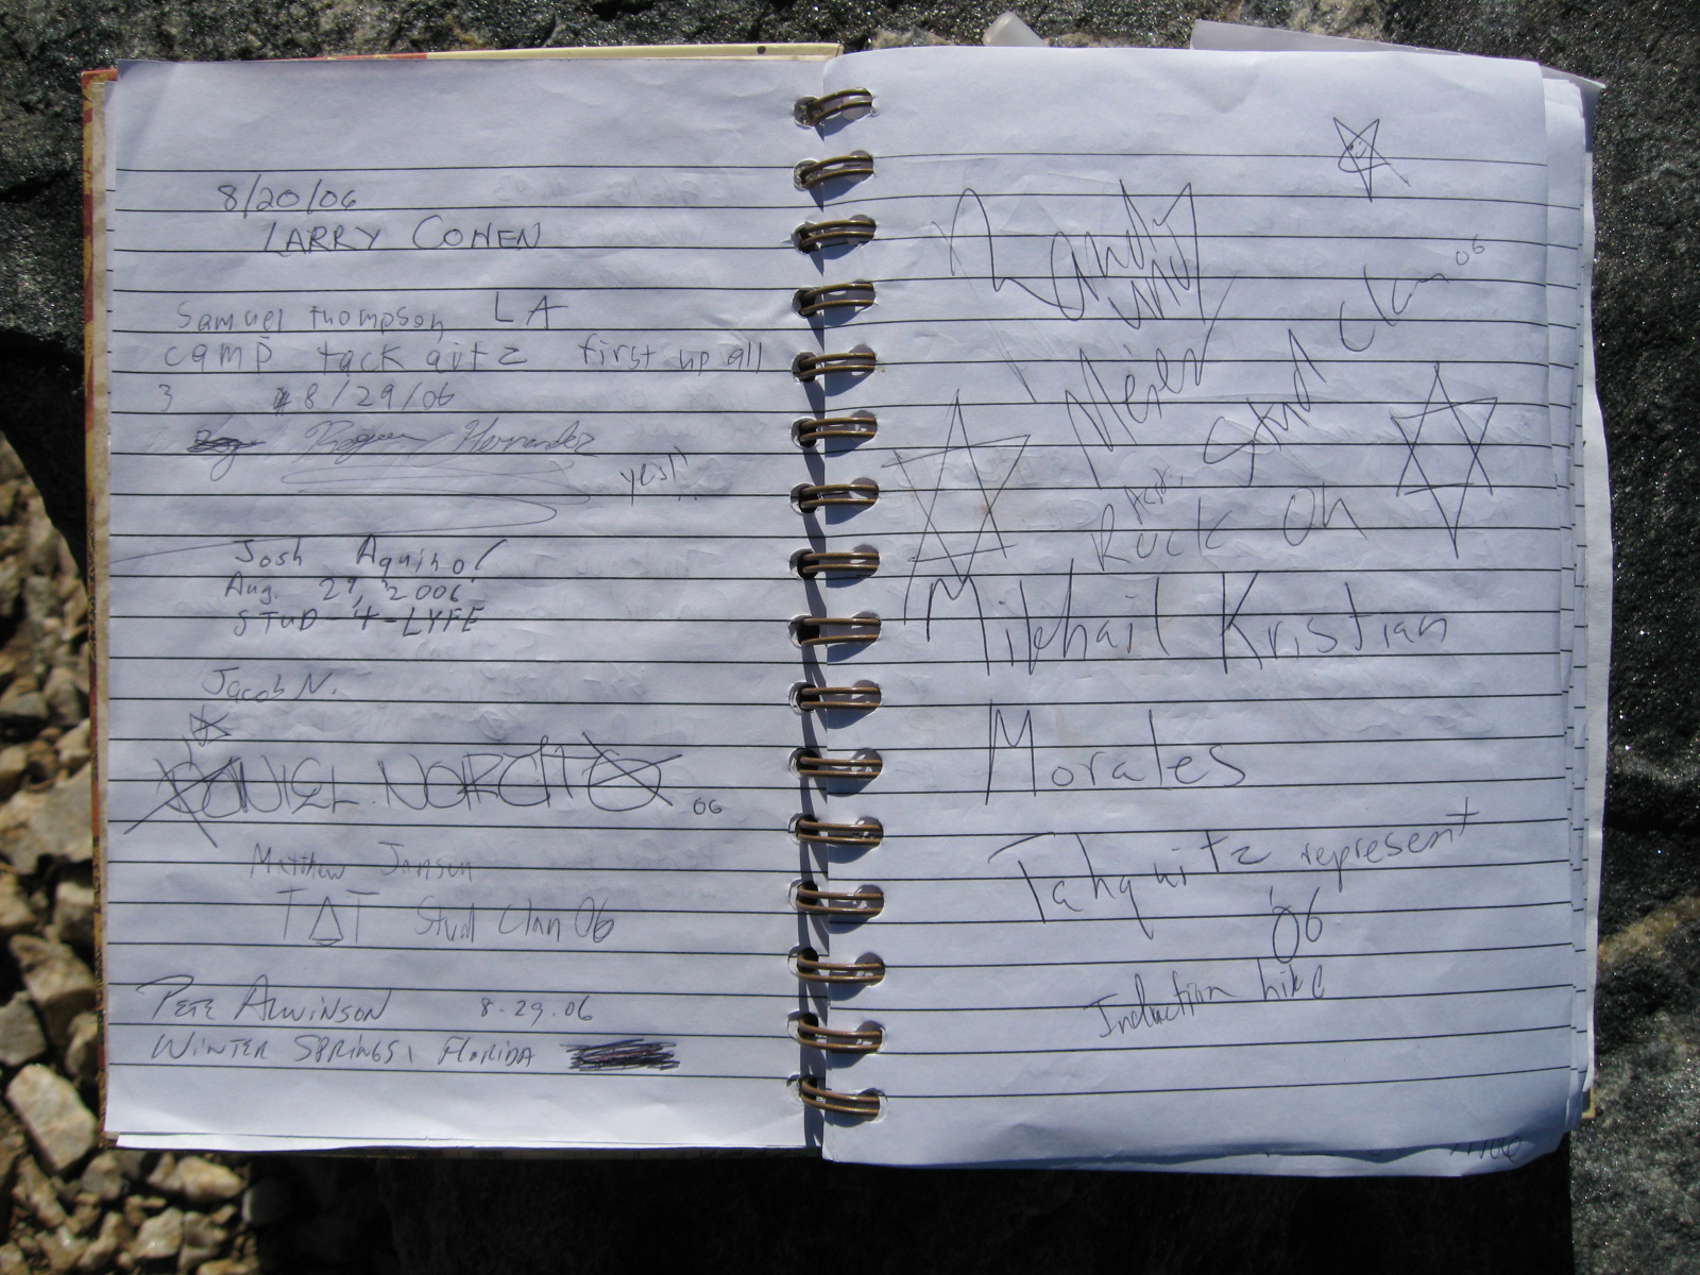 8/20/06
LARRY COHEN
Samuel thompson LA
camp tack qitz first up all
3 8/29/06
Hernandez
yes!!
Josh
Aug. 29, 2006
STUD-4-LYFE
Jacob N.
DANIEL 06
Matthew Jansen
TΔT Stud Clan 06
PETE 8.29.06
WINTER SPRINGS, FLORIDA
Randy
Meier
Stud Clan 06
Rock On
Mikhail Kristian
Morales
Tahquitz represent
'06
Induction hike